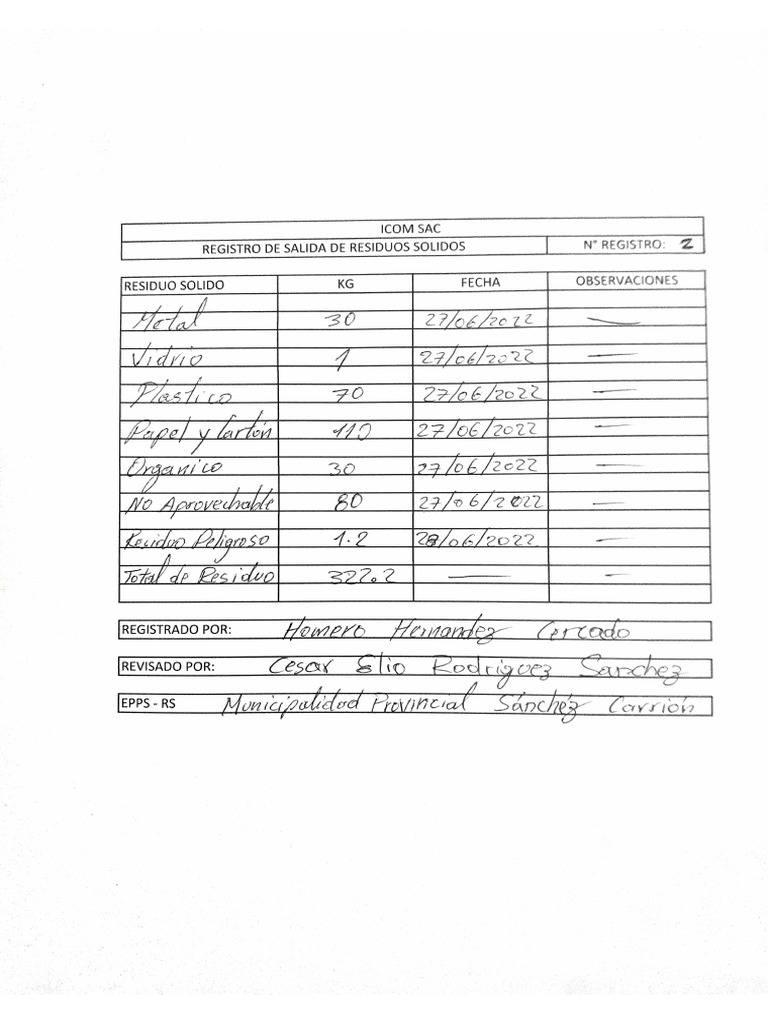 ICOM SAC
REGISTRO DE SALIDA DE RESIDUOS SOLIDOS N° REGISTRO: 2
RESIDUO SOLIDO KG FECHA OBSERVACIONES
Metal 30 27/06/2022 —
Vidrio 1 27/06/2022 —
Plastico 70 27/06/2022 —
Papel y Cartón 110 27/06/2022 —
Organico 30 27/06/2022 —
No Aprovechable 80 27/06/2022 —
Residuo Peligroso 1.2 28/06/2022 —
Total de Residuo 322.2 — —
REGISTRADO POR: Homero Hernandez Cercado
REVISADO POR: Cesar Elio Rodriguez Sanchez
EPPS - RS Municipalidad Provincial Sánchéz Carrión